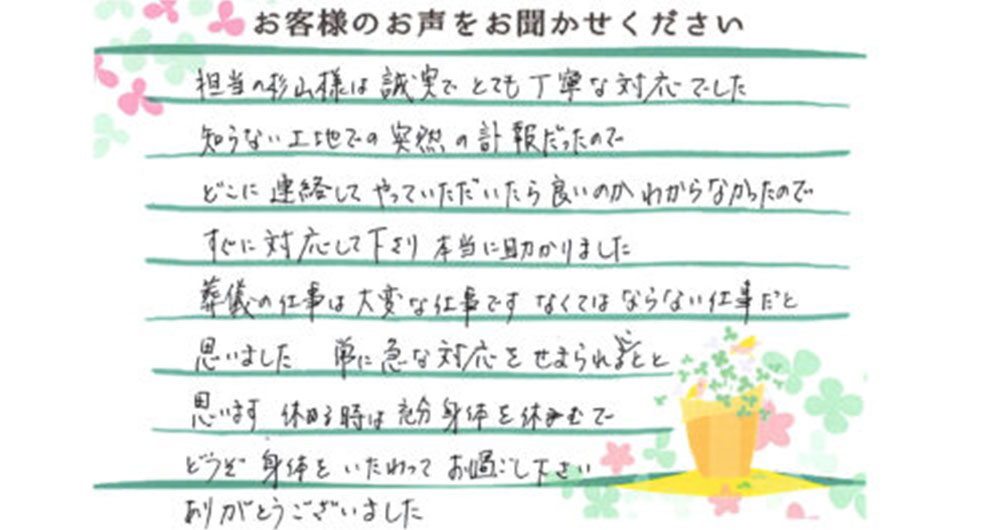 お客様のお声をお聞かせください
担当の杉山様は誠実で とても丁寧な対応でした
知らない土地での突然の訃報だったので
どこに連絡して やっていただいたら良いのかわからなかったので
すぐに対応して下さり 本当に助かりました
葬儀の仕事は大変な仕事です なくてはならない仕事だと
思いました 常に急な対応をせまられることと
思います 休める時は充分身体を休めて
どうぞ 身体をいたわって お過ごし下さい
ありがとうございました